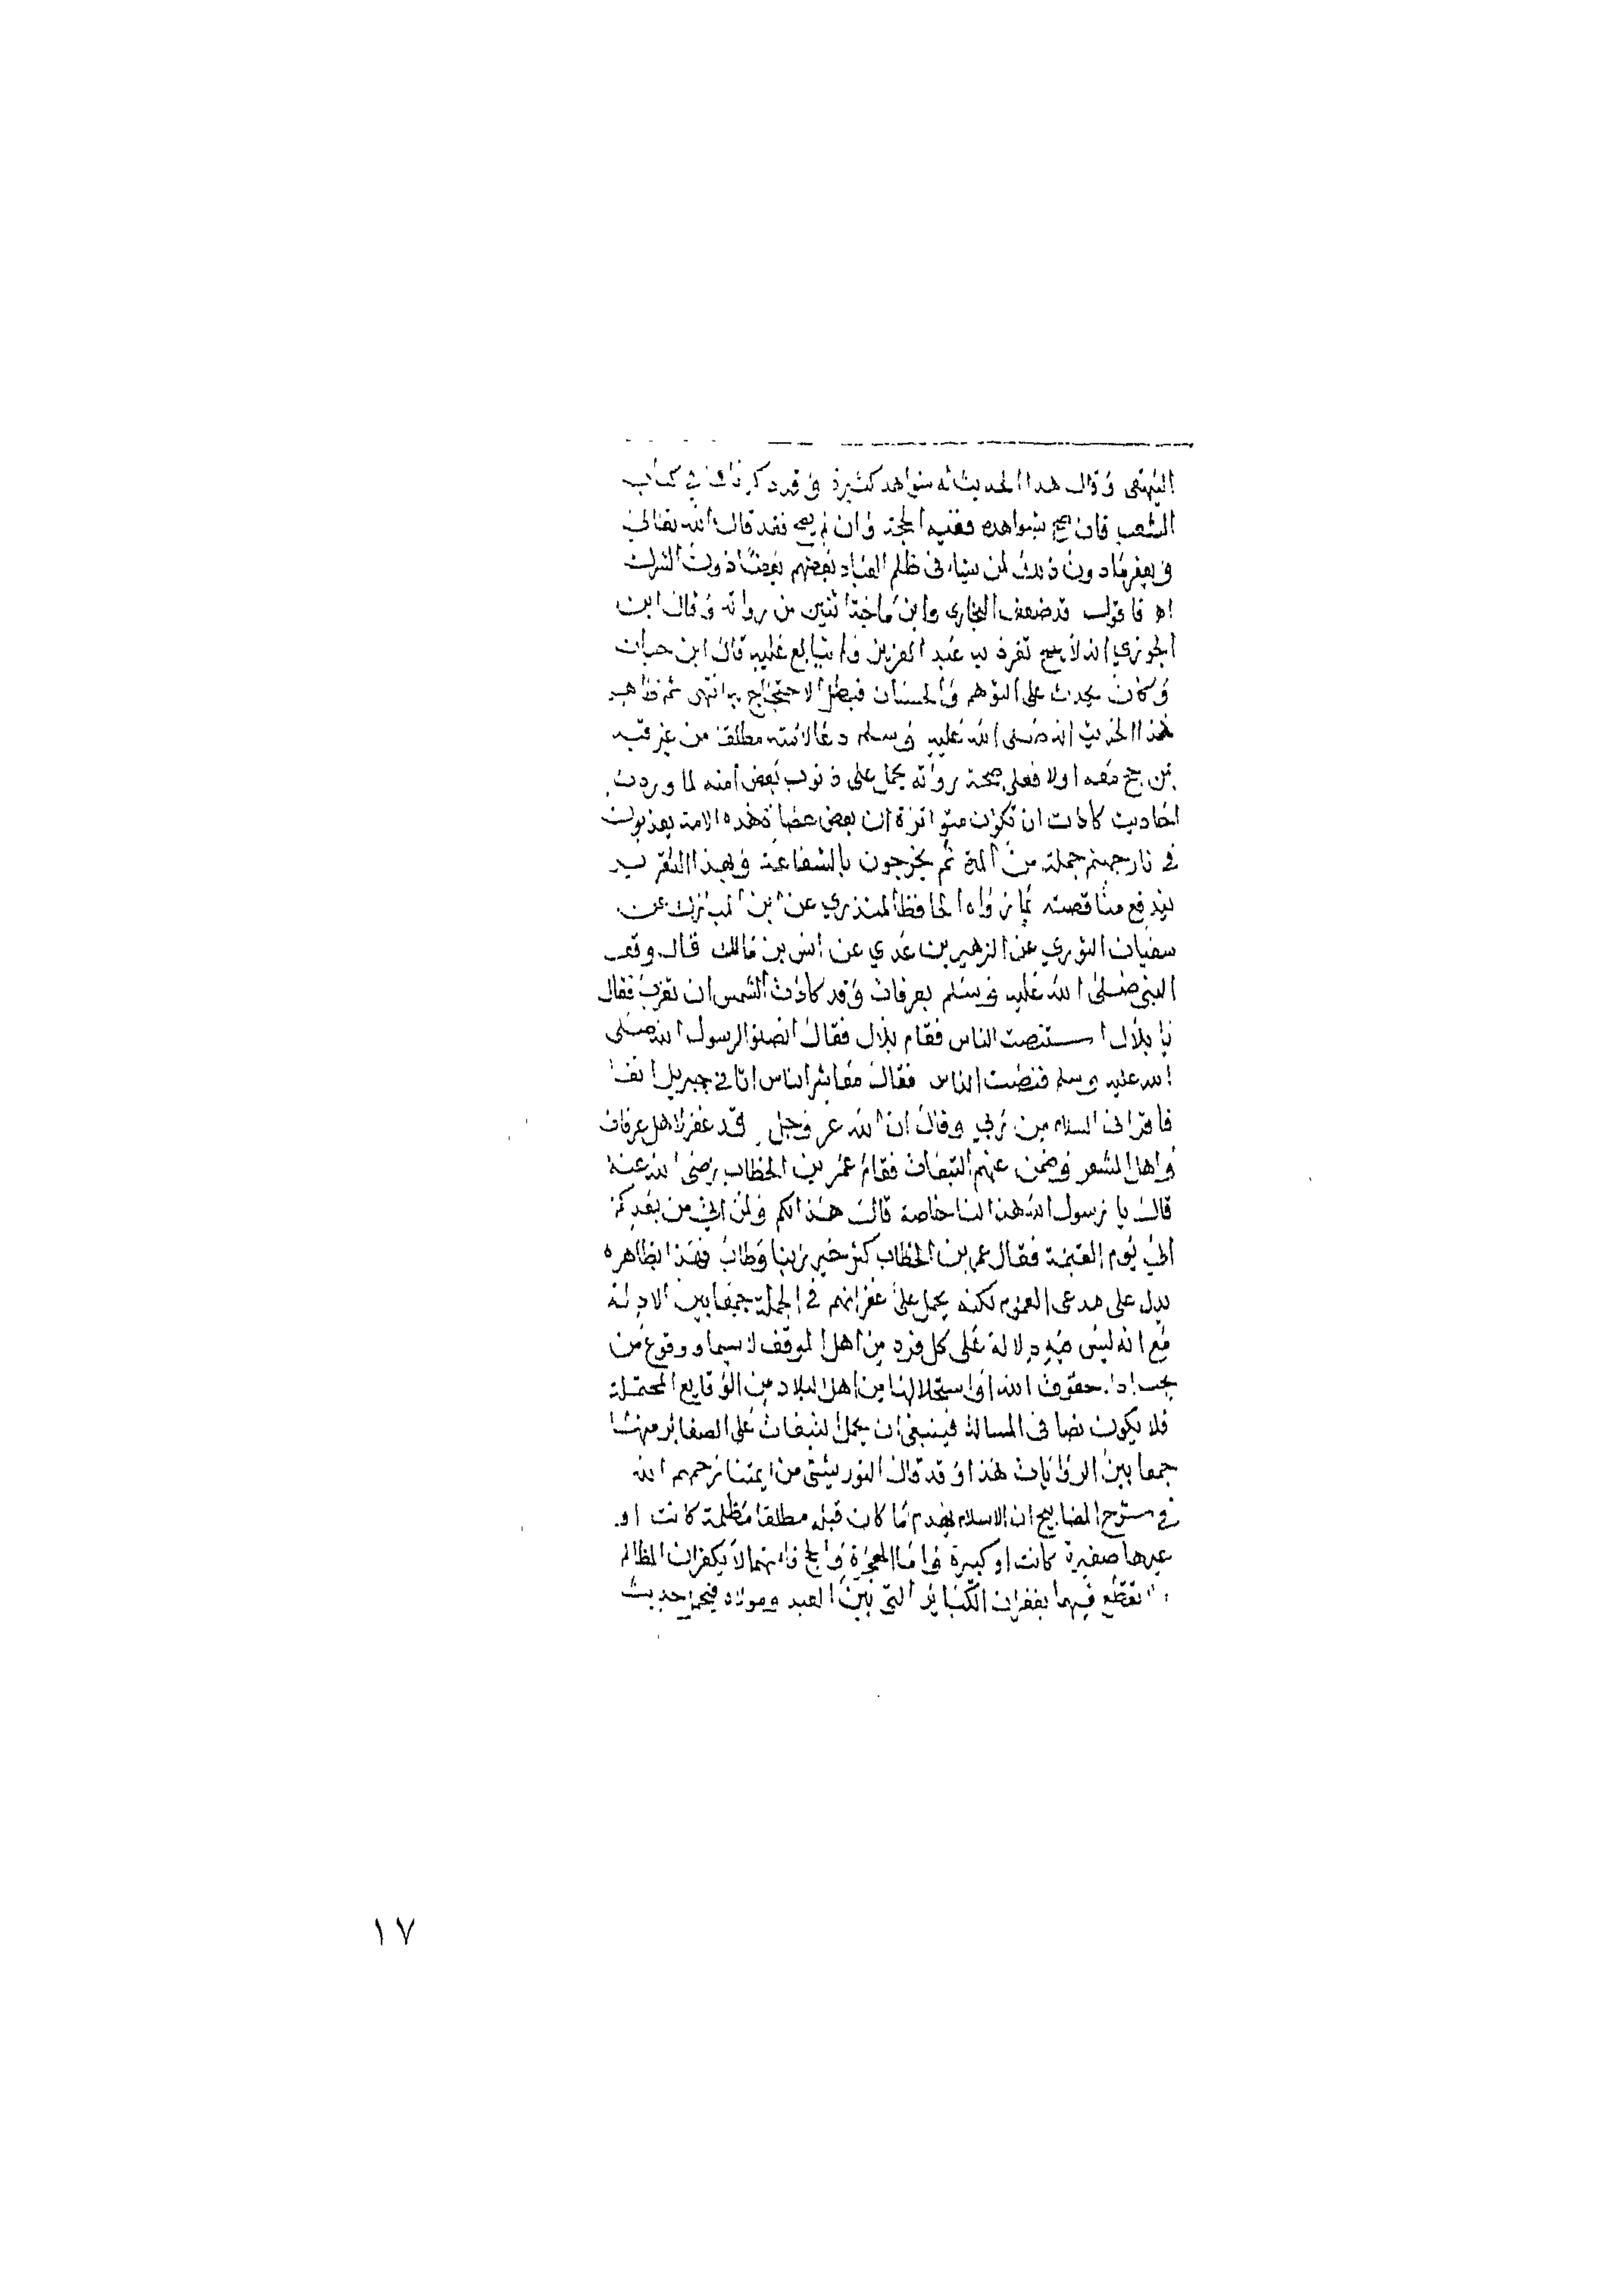 البيهقي وقال هذا الحديث له شواهد كثيرة وقد ذكرناه في كتاب
الشعب فان صح بشواهده ففيه الحجة وان لم يصح فقد قال الله تعالى
ويغفر ما دون ذلك لمن يشاء وظلم العباد بعضهم بعضا دون الشرك
اه فاقول قد ضعف البخاري وابن ماجة اثنين من رواته وقال ابن
الجوزي انه لا يصح تفرد به عبد العزيز ولم يتابع عليه قال ابن حبان
وكان يحدث على التوهم والحسبان فبطل الاحتجاج به انتهى ثم ظاهر
هذا الحديث انه صلى الله عليه وسلم دعا لامته مطلقا من غير قيد
بمن حج معه اولا فعلى صحة رواته يحمل على ذنوب بعض امته لما وردت
احاديث كادت ان تكون متواترة ان بعض عصاة هذه الامة يعذبون
في نار جهنم جملة من ثم يخرجون بالشفاعة وبهذا التقرير
يندفع مناقضته بما رواه الحافظ المنذري عن ابن المبارك عن
سفيان الثوري عن الزهير بن عدي عن انس بن مالك قال وقف
النبي صلى الله عليه وسلم بعرفات وقد كادت الشمس ان تغرب فقال
يا بلال استنصت الناس فقام بلال فقال انصتوا لرسول الله صلى
الله عليه وسلم فنصت الناس فقال معاشر الناس اتاني جبريل انفا
فاقراني السلام من ربي وقال ان الله عز وجل قد غفر لاهل عرفات
واهل المشعر وضمن عنهم التبعات فقام عمر بن الخطاب رضي الله عنه
قال يا رسول الله هذا لنا خاصة قال هذا لكم ولمن اتي من بعدكم
الى يوم القيمة فقال عمر بن الخطاب كثر خير ربنا وطاب فهذا بظاهره
يدل على مدعى العموم لكنه يحمل على غفرانهم في الجملة جمعا بين الادلة
مع انه ليس فيه دلالة على كل فرد من اهل الموقف لا سيما ووقوع من
يجب اداء حقوق الله او استحلالها من اهل البلاد من الوقايع المحتملة
فلا يكون نصا في المسالة فينبغي ان يحمل التبعات على الصغاير منها
جمعا بين الروايات هذا وقد قال التوربشتي من ايمتنا رحمهم الله
في شرح المصابيح ان الاسلام يهدم ما كان قبله مطلقا مظلمة كانت او
غيرها صغيرة كانت او كبيرة واما الهجرة والحج فانهما لا يكفران المظالم
ولا نقطع فيهما بغفران الكبائر التي بين العبد ومولاه فيحمل حديث
١٧